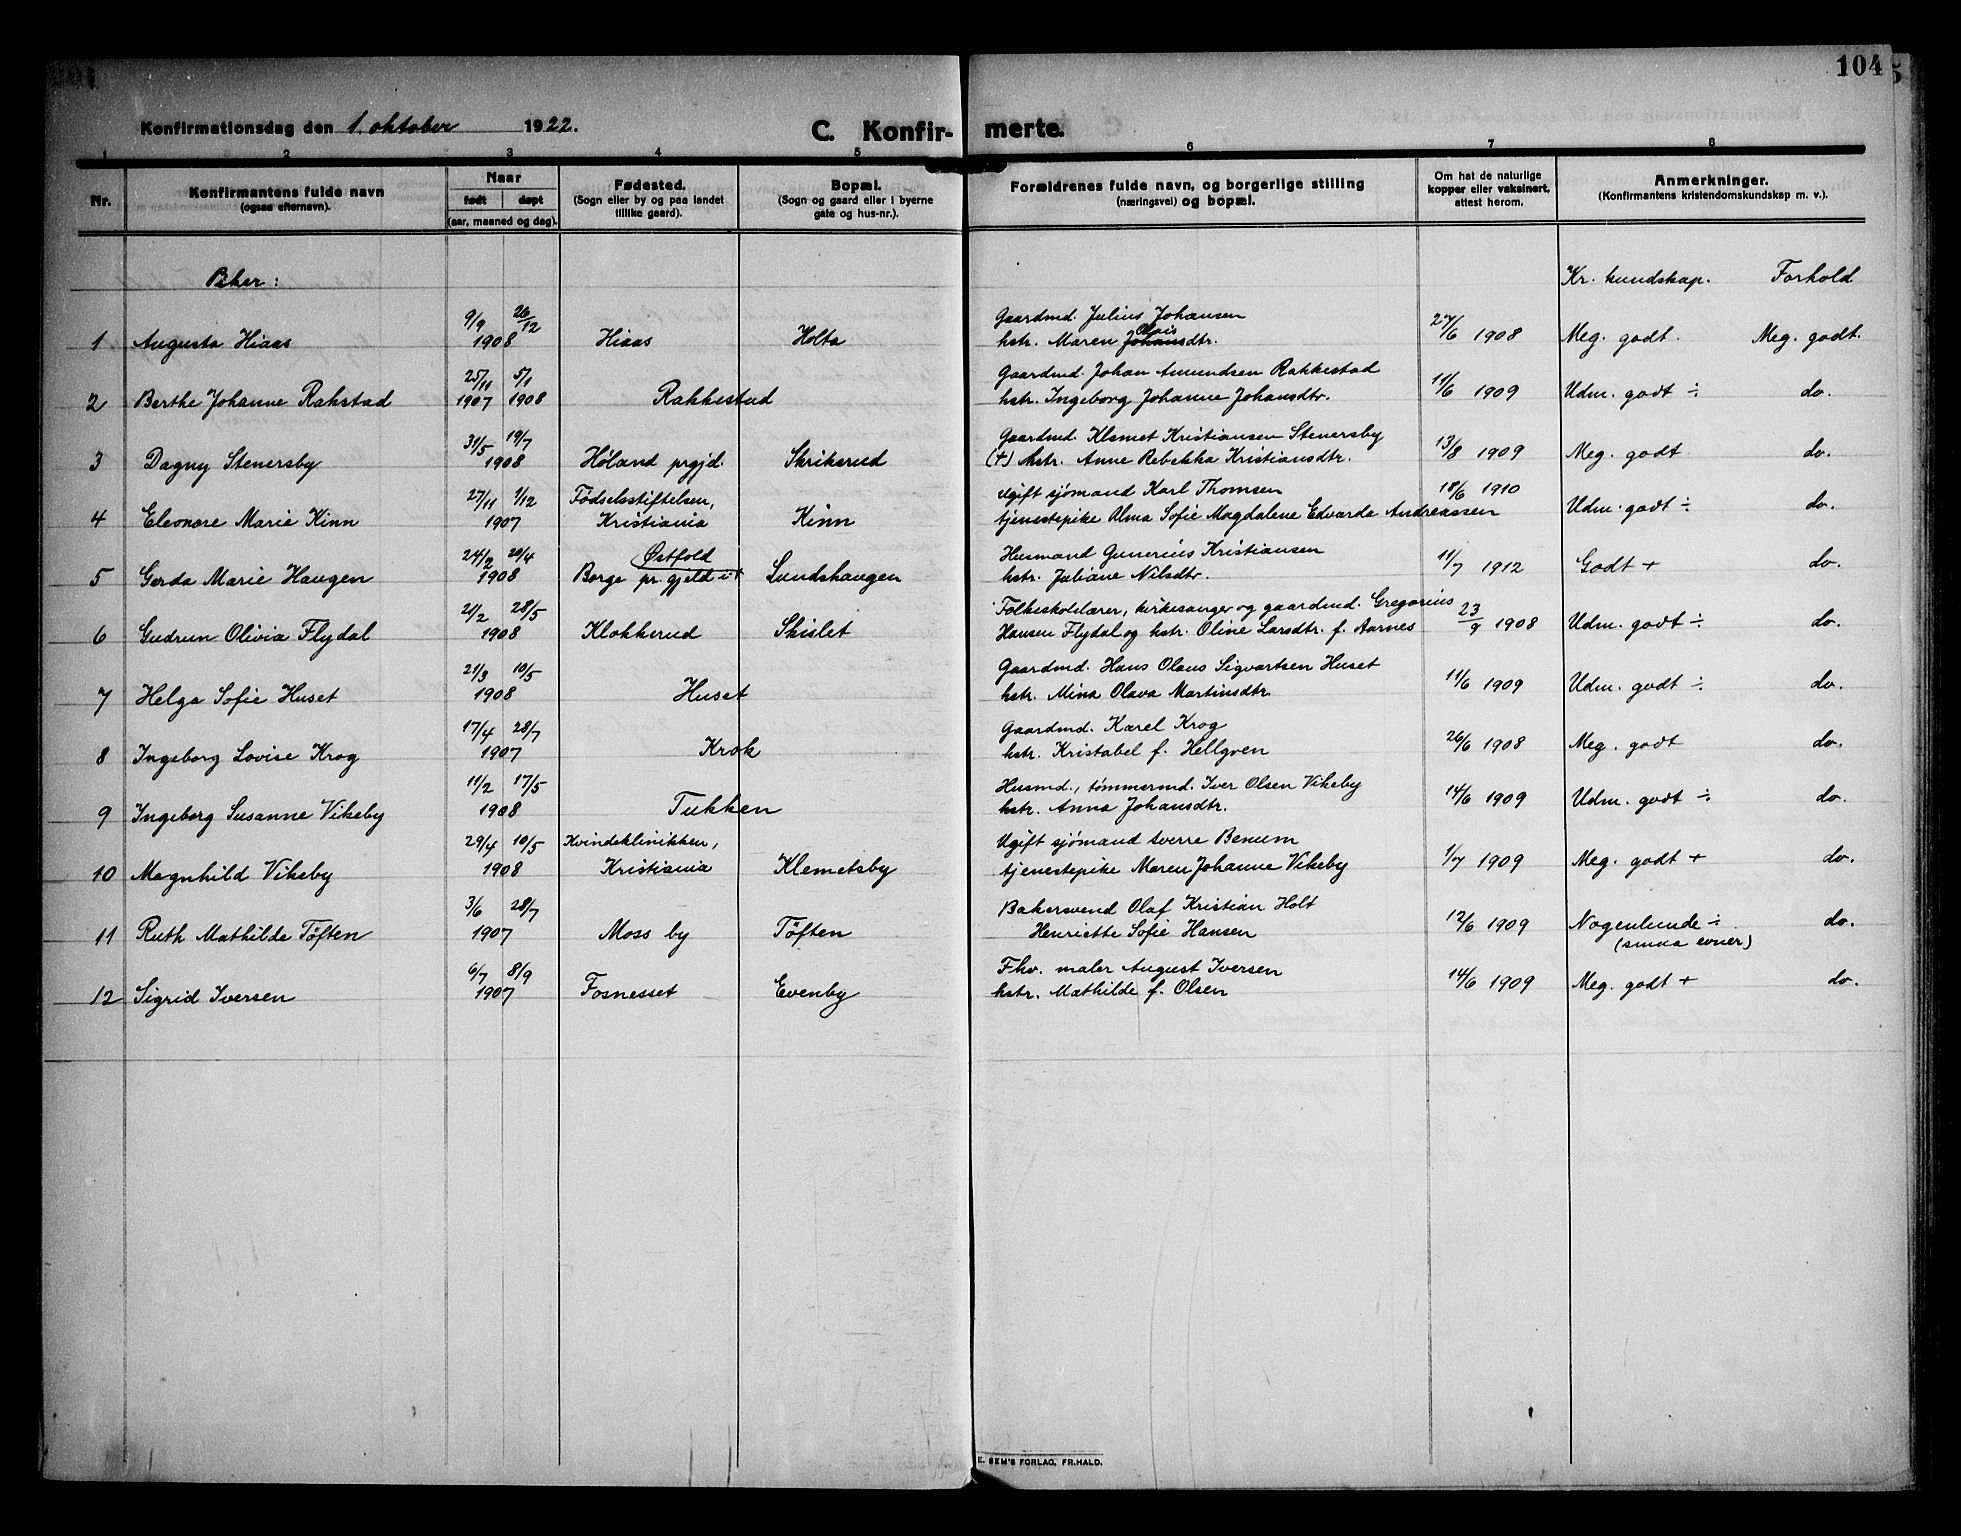 104
Konfirmationsdag den 1. oktober 1922.
C. Konfir- merte.
1 2 3 4 5 6 7 8
Nr.
Konfirmantens fulde navn
(ogsaa efternavn).
Naar
født døpt
(aar, maaned og dag).
Fødested.
(Sogn eller by og paa landet
tillike gaard).
Bopæl.
(Sogn og gaard eller i byerne
gate og hus-nr.).
Forældrenes fulde navn, og borgerlige stilling
(næringsvei) og bopæl.
Om hat de naturlige
kopper eller vaksinert.
attest herom.
Anmerkninger.
(Konfirmantens kristendomskundskap m. v.).
Piker: Kr. kundskap. Forhold
9/9 26/12 Gaardmd. Julius Johansen
1 Augusta Hiaas 1908 Hiaas Holta hstr. Maren Johansdtr. Olais 27/6 1908 Meg. godt. Meg. godt.
25/11 5/1 Gaardmd. Johan Amundsen Rakkestad
2 Berthe Johanne Rakstad 1907 1908 Rakkestad hstr. Ingeborg Johanne Johansdtr. 11/6 1909 Udm. godt ÷ do.
31/5 19/7 Gaardmd. Klemet Kristiansen Stenersby
3 Dagny Stenersby 1908 Høland prgjd. Skrikerud (+) hstr. Anne Rebekka Kristiansdtr. 13/8 1909 Meg. godt do.
27/11 1/12 Fødselsstiftelsen, Ugift sjømand Karl Thomsen 18/6 1910
4 Eleonore Marie Kinn 1907 Kristiania Kinn tjenestepike Alma Sofie Magdalene Edvarda Andreassen Udm. godt ÷ do.
24/2 20/4 Østfold Husmand Gunerius Kristiansen
5 Gerda Marie Haugen 1908 Borge pr.gjeld i Lundshaugen hstr. Juliane Nilsdtr. 11/7 1912 Godt + do.
21/2 28/5 Folkeskolelærer, kirkesanger og gaardmd. Gregorius
6 Gudrun Olivia Flydal 1908 Klokkerud Skislet Hansen Flydal og hstr. Oline Larsdtr. f. Aarnes 23/9 1908 Udm. godt ÷ do.
21/3 10/5 Gaardmd. Hans Olaus Sigvartsen Huset
7 Helga Sofie Huset 1908 Huset hstr. Mina Olava Martinsdtr 11/6 1909 Udm. godt ÷ do.
17/4 28/7 Gaardmd. Karel Krog
8 Ingeborg Lovise Krog 1907 Krok hstr. Kristabel f. Hellgven 26/6 1908 Meg. godt do.
11/2 17/5 Husmd., tømmermd. Iver Olsen Vikeby
9 Ingeborg Susanne Vikeby 1908 Tukken hstr. Anna Johansdtr. 14/6 1909 Udm. godt ÷ do.
29/4 10/5 Kvindeklinikken, Ugift sjømand Sverre Benum
10 Magnhild Vikeby 1908 Kristiania Klemetsby tjenestepike Maren Johanne Vikeby 1/7 1909 Meg. godt + do.
3/6 28/7 Bakersvend Olaf Kristian Holt
11 Ruth Mathilde Tøften 1907 Moss by Tøften Henriette Sofie Hansen 12/6 1909 Nogenlunde ÷ do.
(smaa evner)
6/7 8/9 Fhv. maler August Iversen
12 Sigrid Iversen 1907 Fosnesset Evenby hstr. Mathilde f. Olsen 14/6 1909 Meg. godt + do.
E. SEM'S FORLAG, FR.HALD.